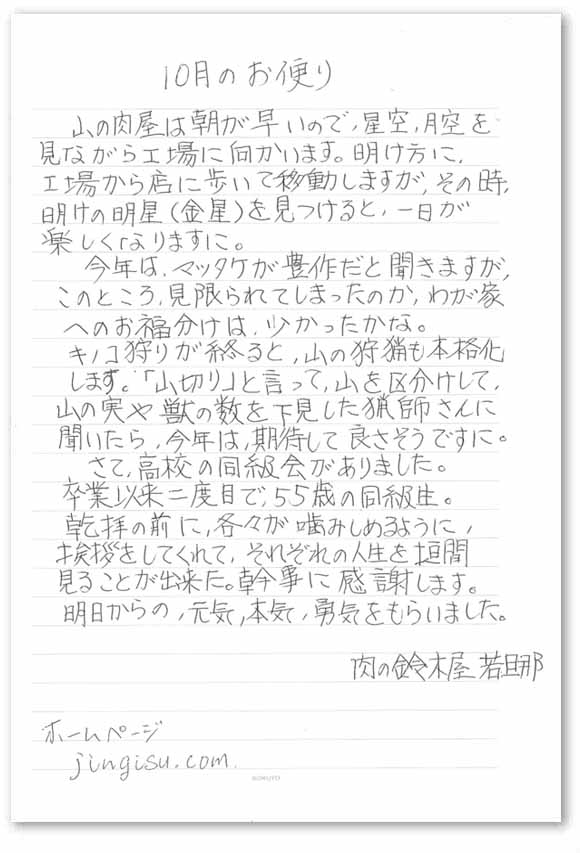 10月のお便り
山の肉屋は朝が早いので、星空、月空を
見ながら工場に向かいます。明け方に、
工場から店に歩いて移動しますが、その時、
明けの明星(金星)を見つけると、一日が
楽しくなりますに。
今年は、マッタケが豊作だと聞きますが、
このところ、見限られてしまったのか、わが家
へのお福分けは、少かったかな。
キノコ狩りが終ると、山の狩猟も本格化
します。「山切り」と言って、山を区分けして、
山の実や獣の数を下見した猟師さんに
聞いたら、今年は、期待して良さそうですに。
さて、高校の同級会がありました。
卒業以来二度目で、55歳の同級生。
乾拝の前に、各々が噛みしめるように、
挨拶をしてくれて、それぞれの人生を垣間
見ることが出来た。幹事に感謝します。
明日からの、元気、本気、勇気をもらいました。
肉の鈴木屋 若旦那
ホームページ
jingisu.com.
KOKUYO